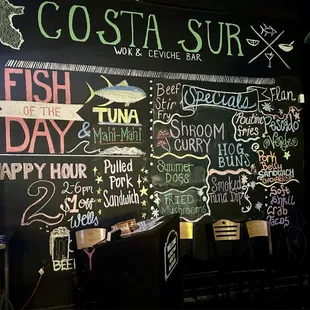 COSTA SUR
WOK & CEVICHE BAR
FISH
OF THE
DAY
TUNA
& Mahi-Mahi
HAPPY HOUR
2-6pm
$1 off
Wells
2
BEER
Pulled
Pork
Sandwich
Beef
Stir
Fry
Specials
Shroom
Curry
Summer
Dogs
FRIED
Mushrooms
Poutine
Fries
HOG
BUNS
Smoked
Tuna Dip
Flan
Pork
Belly
Sandwich
Soft
Shell
Crab
Tacos